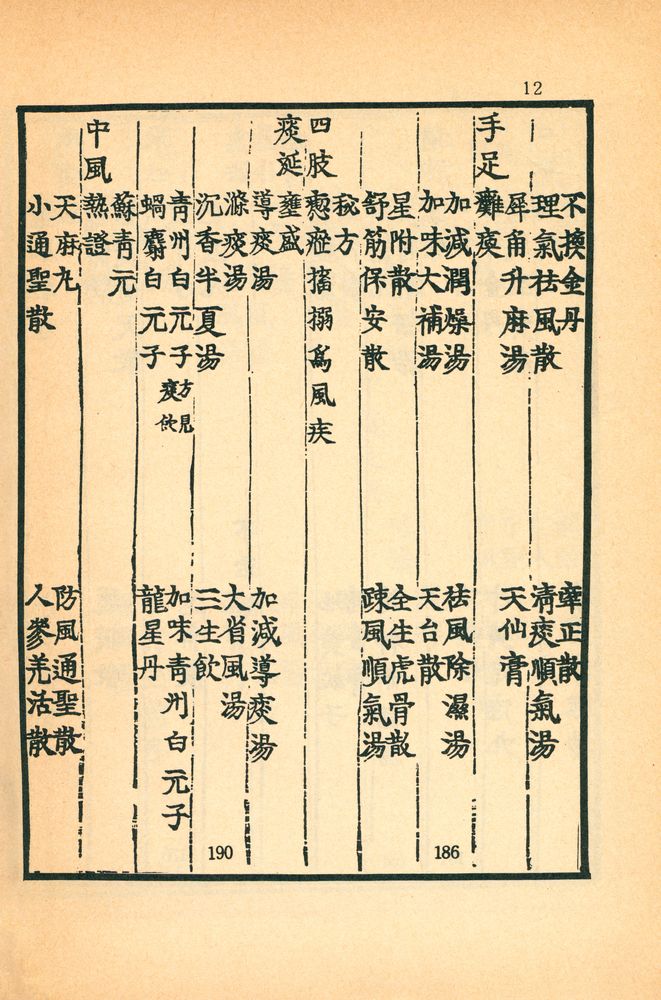 12
不換金丹　牽正散
理氣祛風散　清痰順氣湯
犀角升麻湯　天仙膏
手足癱瘓
加減潤燥湯　祛風除濕湯
加味大補湯　天台散
186
星附散　全生虎骨散
舒筋保安散　疎風順氣湯
秘方
四肢瘛瘲搐搦爲風疾
痰涎壅盛
導痰湯　加減導痰湯
滌痰湯　大省風湯
190
沉香半夏湯　三生飲
青州白元子方見痰飲　加味青州白元子
蝎麝白元子　龍星丹
蘇青元
中風熱證
天麻丸　防風通聖散
小通聖散　人參羌活散